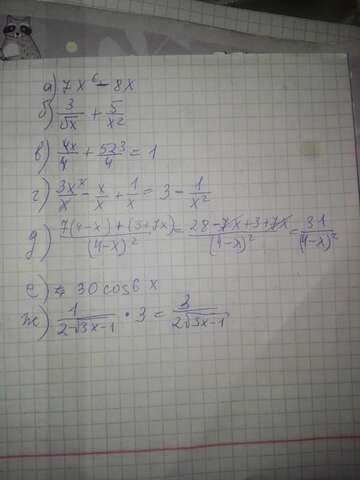 а) 7x⁶ - 8x
б) 3/√x + 5/x²
в) 4x/4 + 523/4 = 1
г) 3x²/x - x/x + 1/x = 3 - 1/x²
д) (7(4-x) + (3+7x))/(4-x)² = (28-7x+3+7x)/(4-x)² = 31/(4-x)²
е) 30cos6x
ж) 1/(2√3x-1) · 3 = 3/(2√3x-1)